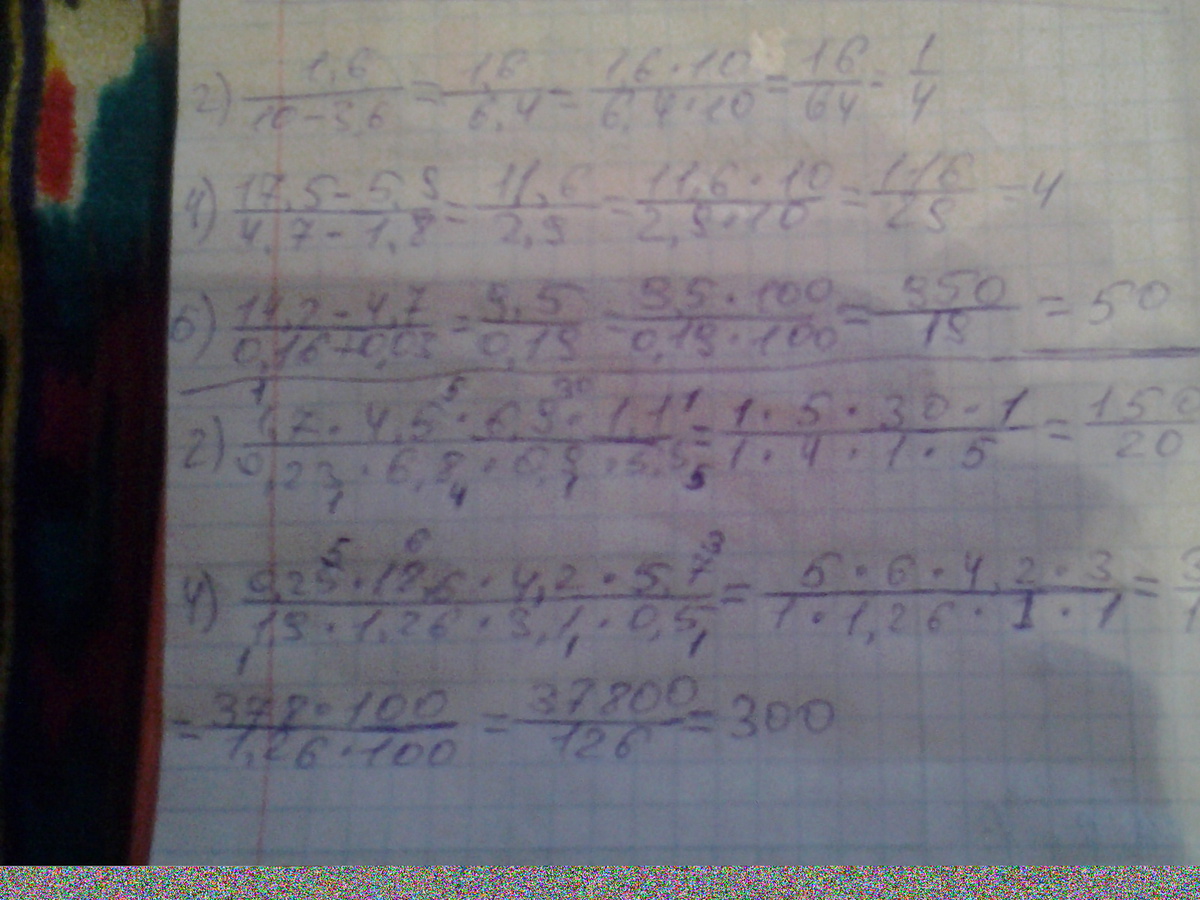 2) 1,6/(10-3,6) = 1,6/6,4 = 1,6·10/6,4·10 = 16/64 = 1/4
4) (17,5-5,9)/(4,7-1,8) = 11,6/2,9 = 11,6·10/2,9·10 = 116/29 = 4
6) (14,2-4,7)/(0,16+0,03) = 9,5/0,19 = 9,5·100/0,19·100 = 950/19 = 50
1 5 30 1
2) 1,7·4,5·6,9·1,1/0,23·6,8·0,9·5,5 = 1·5·30·1/1·4·1·5 = 150/20
1 4 1 5
5 6 3
4) 0,25·18,6·4,2·5,7/19·1,26·3,1·0,5 = 5·6·4,2·3/1·1,26·1·1 =
1 1 1
= 378·100/1,26·100 = 37800/126 = 300